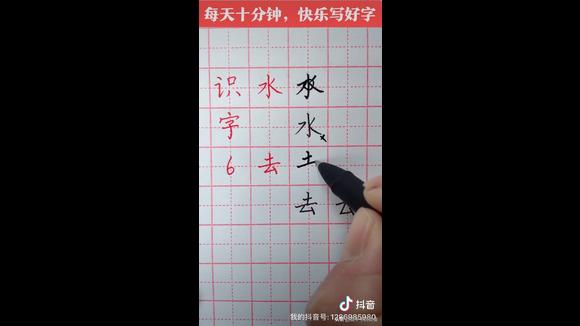 每天十分钟，快乐写好字
识 水 水
字 水
6 去 土
去 去
抖音
我的抖音号: 1286985980